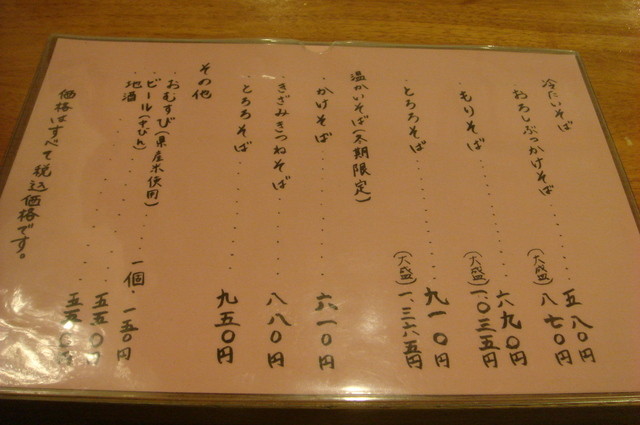 冷たいそば
・おろしぶっかけそば・・・・・・五八〇円
(大盛)八七〇円
・もりそば・・・・・・・・・・六九〇円
(大盛)一、〇三五円
・とろろそば・・・・・・・・・九一〇円
(大盛)一、三六五円
温かいそば(冬期限定)
・かけそば・・・・・・・・・・六一〇円
・きざみきつねそば・・・・・・八八〇円
・とろろそば・・・・・・・・・九五〇円
その他
・おむすび(県産米使用) 一個・一五〇円
・ビール(中びん)・・・・・・五五〇円
・地酒・・・・・・・・・・五五〇円
価格はすべて税込価格です。